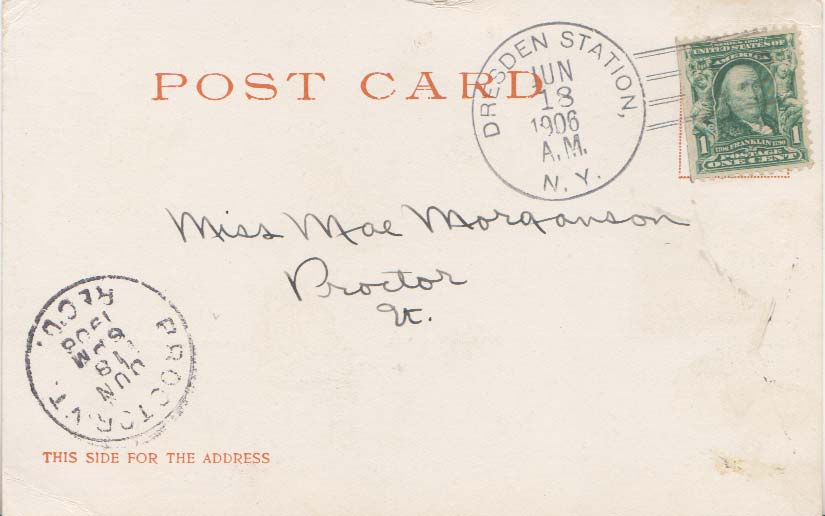 POST CARD
DRESDEN STATION,
JUN
18
1906
A.M.
N. Y.
UNITED STATES OF
AMERICA
1 1706 FRANKLIN 1790 1
POSTAGE
ONE CENT
Miss Mae Morganson
Proctor
Vt.
PROCTOR, VT.
JUN
18
6 PM
1906
REC'D.
THIS SIDE FOR THE ADDRESS